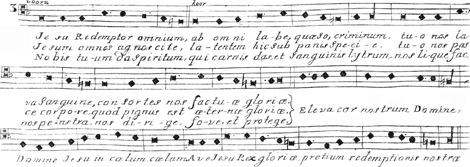 Je su Redemptor omnium, ab omni la-be, quæso, criminum, tu-o nos la
Jesum omnes agnoscite, la-tentem hic sub panis spe-ci-e. tu-o nos pas
No bis tu-um da spiritum, qui carnis das et sanguinis lytrum, nos li-que fac,
va sanguine, con sortes nos factu-æ gloriæ
ce corpo-re, quod pignus est æ-ter-næ gloriæ Eleva cor nostrum Domine,
nos pe-netra, nos di-ri-ge. fo-ve, et protege
Domine Jesu in cælum, cælum Ave Jesu Rex gloriæ, pretium redemptionis nostra